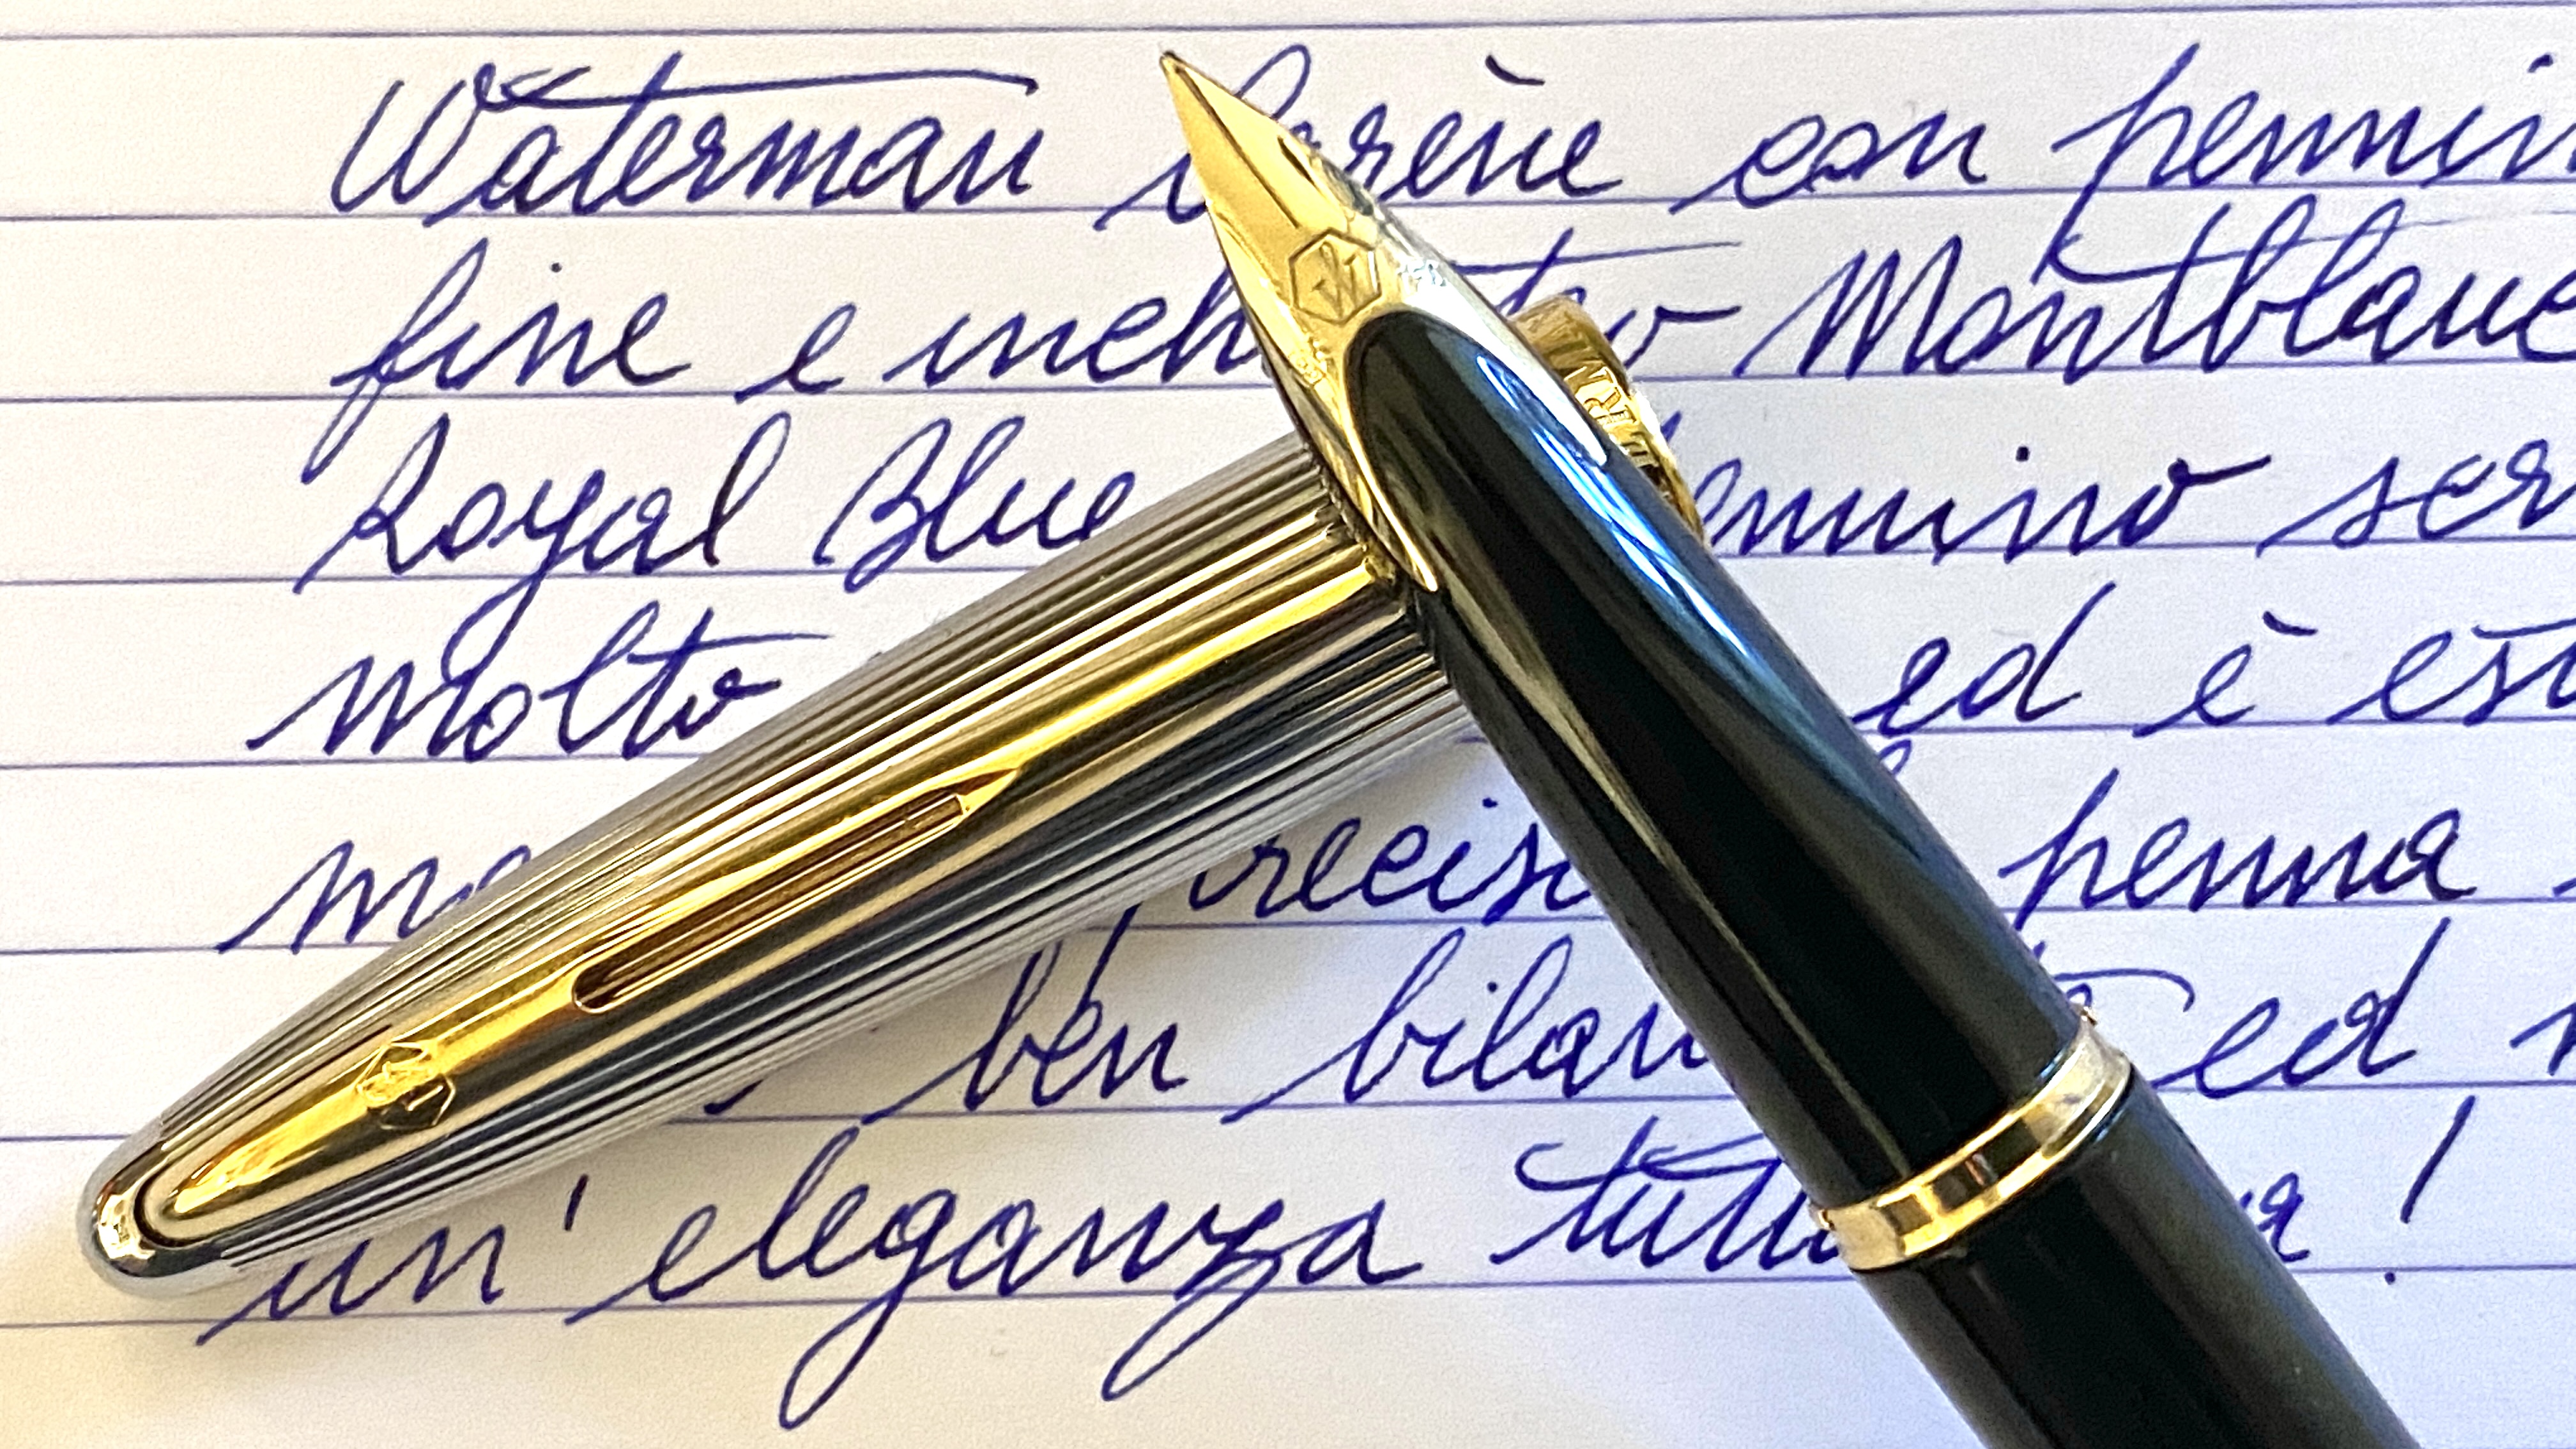 Waterman Carène con pennin
fine e inch tro Montblanc
Royal Blue ennino scr
molto ed è est
mo reciso penna
ben bilan ed
un' eleganza tutt a!